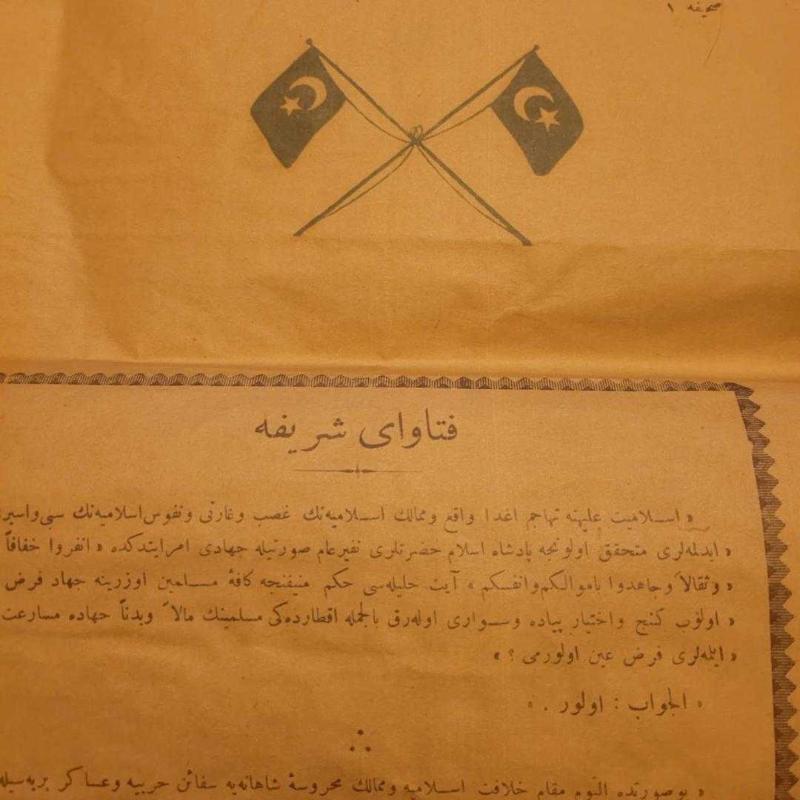 صحیفه ١
فتاوای شریفه
« اسلامیت علیهنه تهاجم اعدا واقع وممالك اسلامیه‌نك غصب وغارتی ونفوس اسلامیه‌نك سبی واسیر
« ایدلمه‌لری متحقق اولونجه پادشاه اسلام حضرتلری نفیرعام صورتیله جهادی امر ایتدكده « انفروا خفافاً
« وثقالاً وجاهدوا باموالكم وانفسكم » آیت جلیله‌سی حكم منیفنجه كافهٔ مسلمین اوزرینه جهاد فرض
« اولوب كنج واختیار پیاده وسواری اوله‌رق بالجمله اقطارده‌كی مسلمینك مالاً وبدناً جهاده مسارعت
« ایتمه‌لری فرض عین اولورمی ؟ »
« الجواب : اولور . »
« بوصورتده الیوم مقام خلافت اسلامیه وممالك محروسهٔ شاهانه‌یه سفائن حربیه وعساكر بریه‌سیله